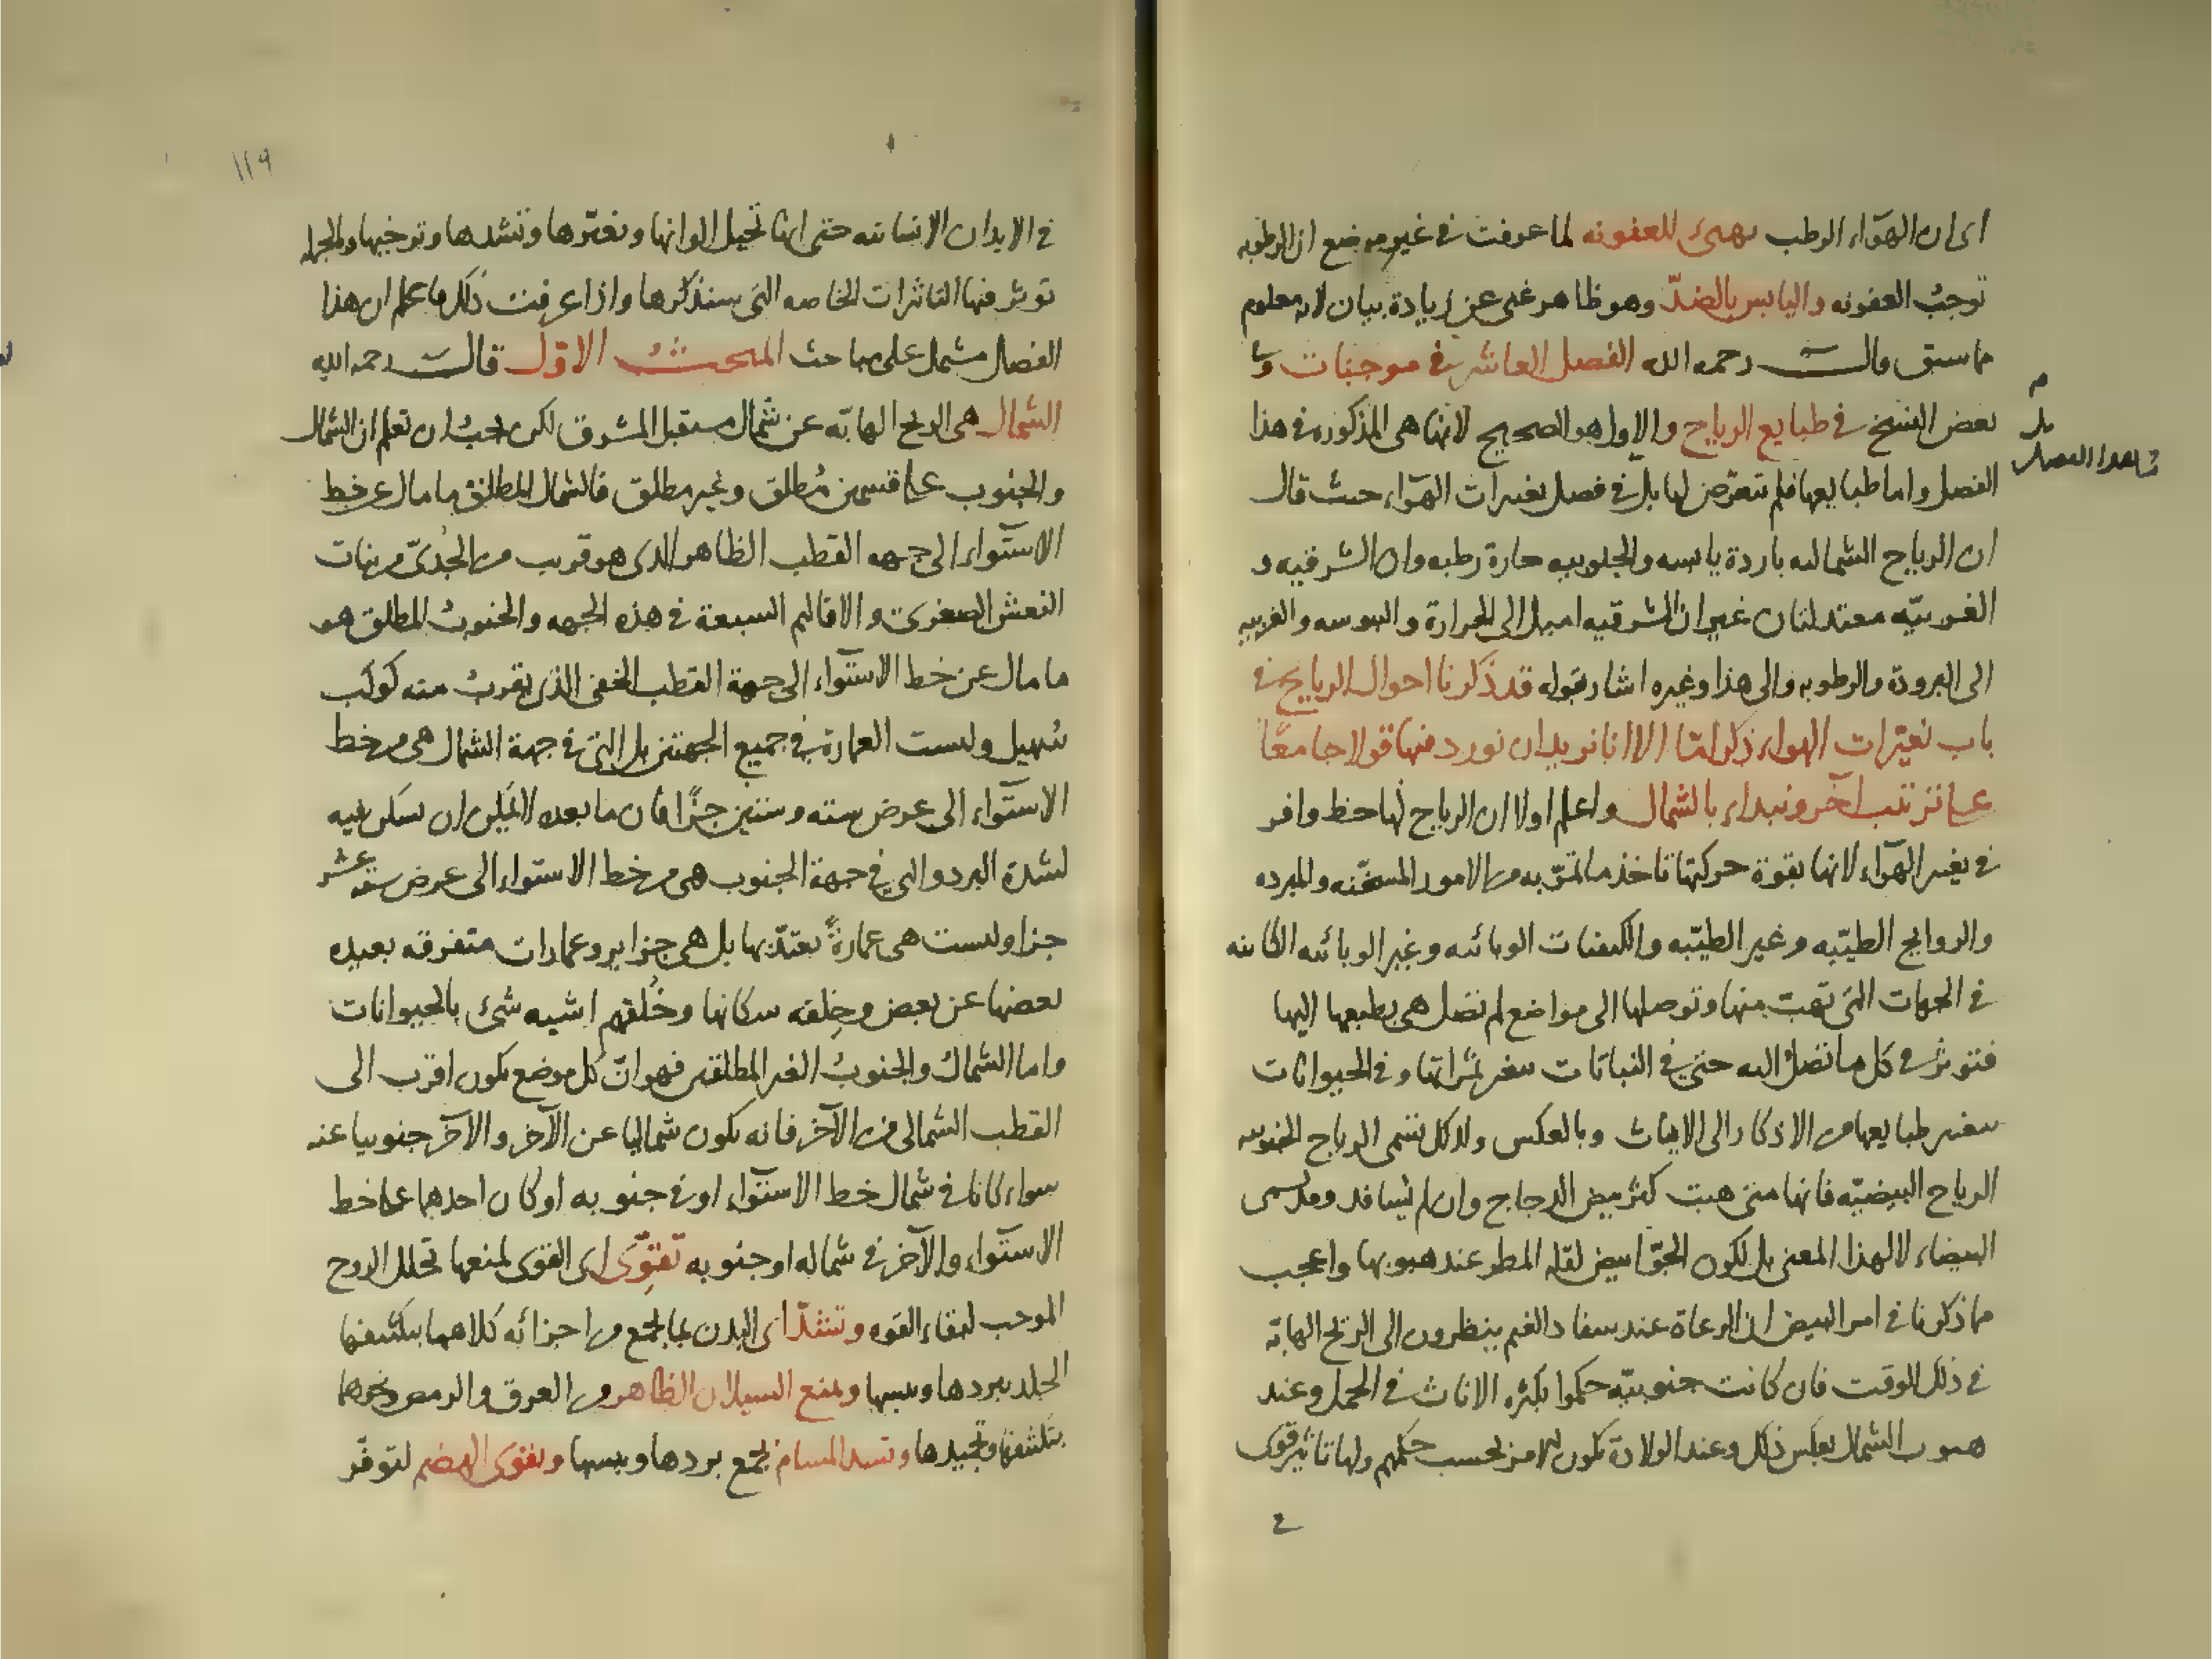 اى ان الهوآء الرطب يهيئ للعفونه لما عرفت فى غير موضع ان الرطوبه
توجب العفونه واليابس بالضدّ وهو ظاهر غنى عن زيادة بيان لانه معلوم
مما سبق قال رحمه الله الفصل العاشر فى موجبات وفى
بعض النسخ فى طبايع الرياح والاول هو الصحيح لانها هى المذكوره فى هذا
الفصل واما طبايعها فلم يتعرّض لها بل فى فصل تغيرات الهوآء حيث قال
ان الرياح الشماليه باردة يابسه والجنوبيه حارة رطبه وان الشرقيه و
الغربيّه معتدلتان غير ان الشرقيه اميل الى الحرارة واليبوسه والغربيه
الى البرودة والرطوبه والى هذا وغيره اشار بقوله قد ذكرنا احوال الرياح فى
باب تغيّرات الهواء ذكرا ما الا انا نريد ان نورد فيها قولا جامعًا
على ترتيب آخر ونبداء بالشمال واعلم اولا ان الرياح لها حظ وافر
فى تغير الهوآء لانها بقوة حركتها تاخذ ما تمرّ به من الامور المسخّنه والمبرده
والروايح الطيّبه وغير الطيّبه والكيفيات الوبائيه وغير الوبائيه الكائنه
فى الجهات التى تهبّ منها وتوصلها الى مواضع لم تصل هى بطبعها اليها
فتؤثر فى كل ما تصل اليه حتى فى النباتات بتغير ثمراتها وفى الحيوانات
بتغير طبايعها من الاذكار الى الايناث وبالعكس ولذلك تسمى الرياح الجنوبيه
الرياح البيضيّه فانها متى هبت كثر بيض الدجاج وان لم تسافد وقد تسمى
البيضاء لا لهذا المعنى بل لكون الجوّ ابيض لقله المطر عند هبوبها واعجب
مما ذكرنا فى امر البيض ان الرعاة عند سفاد الغنم ينظرون الى الريح الهابّه
فى ذلك الوقت فان كانت جنوبيّه حكموا بكثره الاناث فى الحمل وعند
هبوب الشمال بعكس ذلك وعند الولادة يكون الامر بحسب حكمهم ولها تاثير قوى
فى
١١٩
فى الابدان الانسانيه حتى انها تحيل الوانها وتغيّرها وتشدها وترخيها وبالجمله
تؤثر فيها التاثيرات الخاصه التى سنذكرها واذا عرفت ذلك فاعلم ان هذا
الفصل مشتمل على مباحث المبحث الاوّل قال رحمه الله
الشمال هى الريح الهابّه عن شمال مستقبل المشرق لكن يجب ان تعلم ان الشمال
والجنوب على قسمين مُطلق وغير مطلق فالشمال المطلق ما مال عن خط
الاستوآء الى جهه القطب الظاهر الذى هو قريب من الجُدىّ من بنات
النعش الصغرى والاقاليم السبعة فى هذه الجهه والجنوب المطلق هو
ما مال عن خط الاستوآء الى جهة القطب الخفى الذى يقرب منه كوكب
سُهيل وليست العمارة فى جميع الجهتين بل التى فى جهة الشمال هى من خط
الاستوآء الى عرض سته وستين جزًا فان ما بعده لا يمكن ان يسكن فيه
لشدة البرد والتى فى جهة الجنوب هى من خط الاستواء الى عرض سته عشر
جزا وليست هى عمارةً يعتدّ بها بل هى جزاير وعمارات متفرقه بعيده
بعضها عن بعض وخِلقه سكانها وخُلقهم اشبه شئ بالحيوانات
واما الشمال والجنوب الغير المطلقين فهو ان كل موضع يكون اقرب الى
القطب الشمالى من الآخر فانه يكون شماليا عن الآخر والآخر جنوبيا عنه
سواء كانا فى شمال خط الاستوآء او فى جنوبه او كان احدهما على خط
الاستوآء والآخر فى شماله او جنوبه تقوّى اى القوى لمنعها تحلل الروح
الموجب لبقاء القوه وتشدّ اى البدن بما تجمع من اجزائه كلاهما بتكثيفها
الجلد ببردها ويبسها وتمنع السيلان الظاهر من العرق والرمص ونحوهما
بتكثيفها وتجميدها وتسد المسام بجمع بردها ويبسها وتقوى الهضم لتوفّر